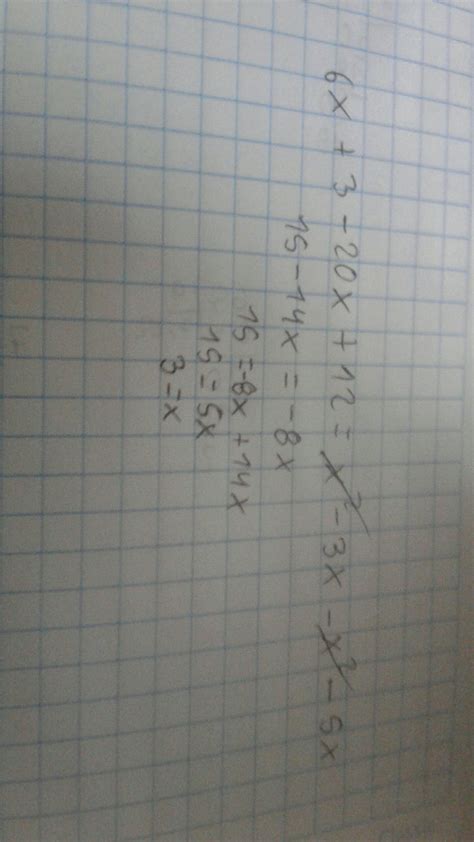 6x + 3 - 20x + 12 = x² - 3x - x² - 5x
15 - 14x = -8x
15 = -8x + 14x
15 = 5x
3 = x